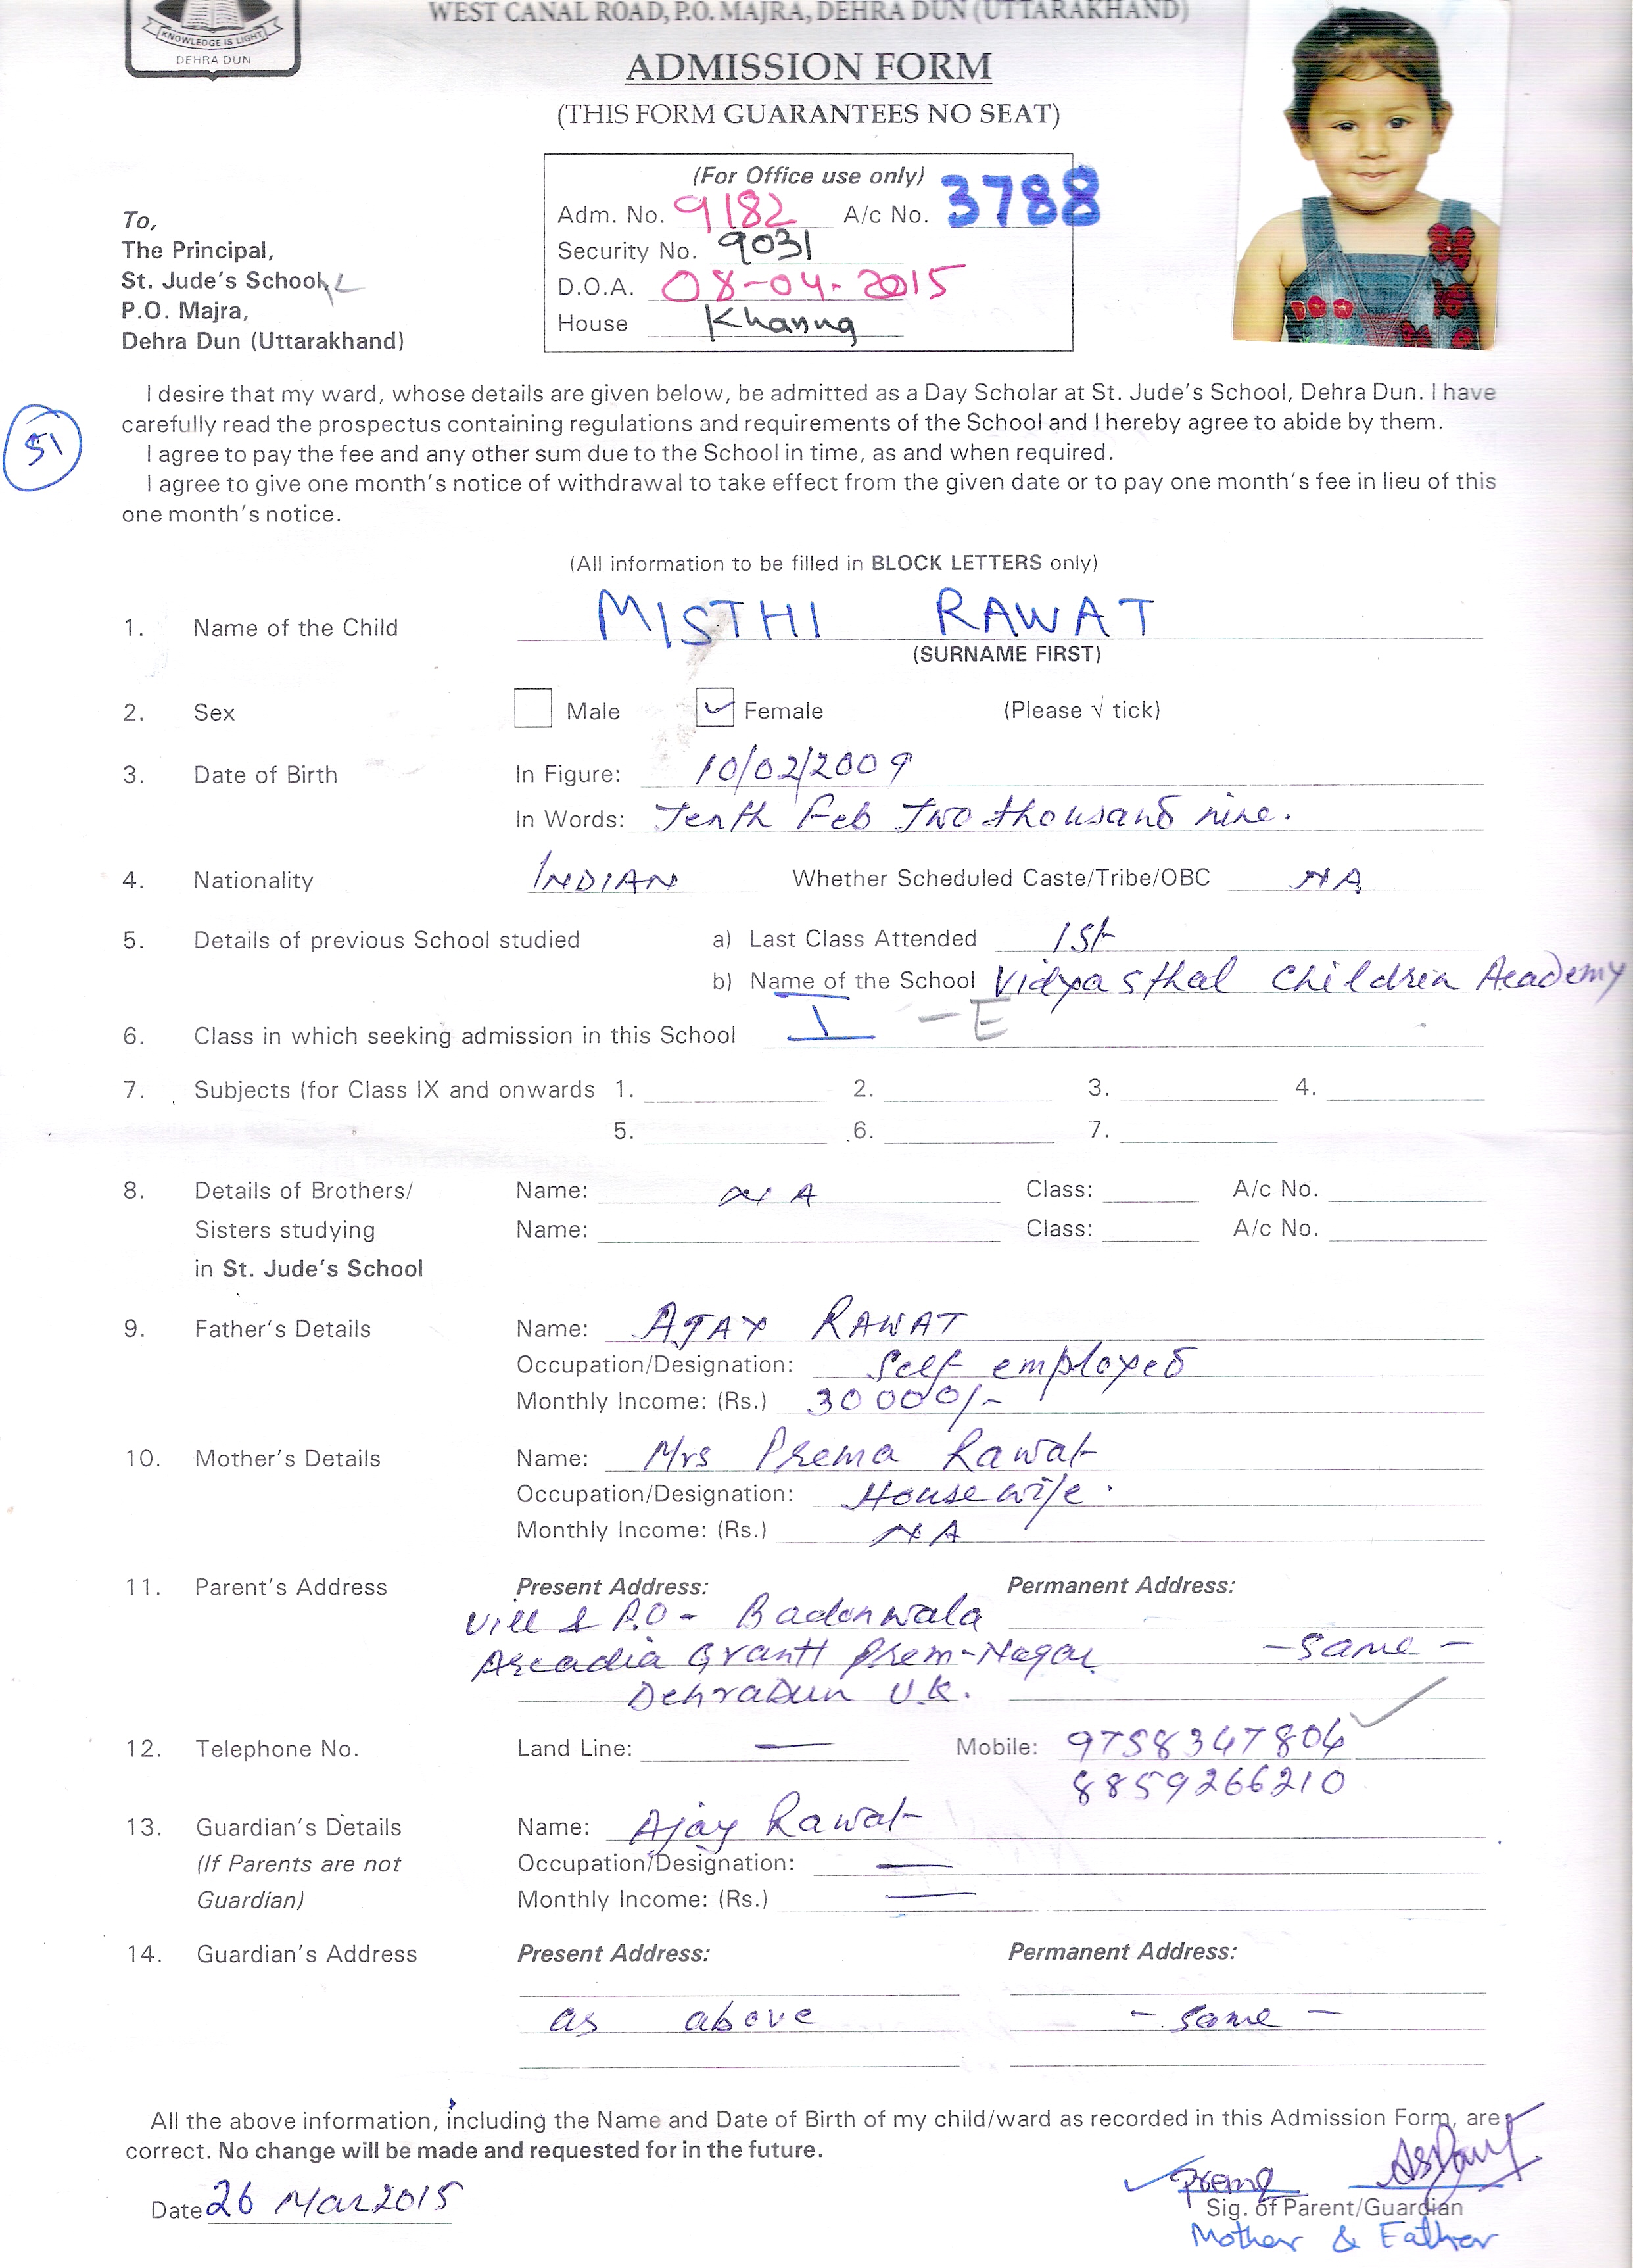 WEST CANAL ROAD, P.O. MAJRA, DEHRA DUN (UTTARAKHAND)
KNOWLEDGE IS LIGHT
DEHRA DUN
ADMISSION FORM
(THIS FORM GUARANTEES NO SEAT)
(For Office use only)
Adm. No. 9182 A/c No. 3788
Security No. 9031
D.O.A. 08-04-2015
House Khanna
To,
The Principal,
St. Jude's School,
P.O. Majra,
Dehra Dun (Uttarakhand)
I desire that my ward, whose details are given below, be admitted as a Day Scholar at St. Jude's School, Dehra Dun. I have
carefully read the prospectus containing regulations and requirements of the School and I hereby agree to abide by them.
51
I agree to pay the fee and any other sum due to the School in time, as and when required.
I agree to give one month's notice of withdrawal to take effect from the given date or to pay one month's fee in lieu of this
one month's notice.
(All information to be filled in BLOCK LETTERS only)
1. Name of the Child MISTHI RAWAT
(SURNAME FIRST)
2. Sex Male ✓ Female (Please √ tick)
3. Date of Birth In Figure: 10/02/2009
In Words: Tenth Feb Two thousand nine.
4. Nationality INDIAN Whether Scheduled Caste/Tribe/OBC NA
5. Details of previous School studied a) Last Class Attended 1st
b) Name of the School Vidyasthal Children Academy
6. Class in which seeking admission in this School I - E
7. Subjects (for Class IX and onwards 1. 2. 3. 4.
5. 6. 7.
8. Details of Brothers/ Name: NA Class: A/c No.
Sisters studying Name: Class: A/c No.
in St. Jude's School
9. Father's Details Name: AJAY RAWAT
Occupation/Designation: Self employed
Monthly Income: (Rs.) 30000/-
10. Mother's Details Name: Mrs Prema Rawat
Occupation/Designation: House wife.
Monthly Income: (Rs.) NA
11. Parent's Address Present Address: Permanent Address:
Vill & P.O - Badonwala
Arcadia Grantt Prem-Nagar - same -
DehraDun U.K.
12. Telephone No. Land Line: — Mobile: 9758347804
8859266210
13. Guardian's Details Name: Ajay Rawat
(If Parents are not Occupation/Designation: —
Guardian) Monthly Income: (Rs.) —
14. Guardian's Address Present Address: Permanent Address:
as above - same -
All the above information, including the Name and Date of Birth of my child/ward as recorded in this Admission Form, are
correct. No change will be made and requested for in the future.
Date 26 Mar 2015 Prema
Sig. of Parent/Guardian
Mother & Father